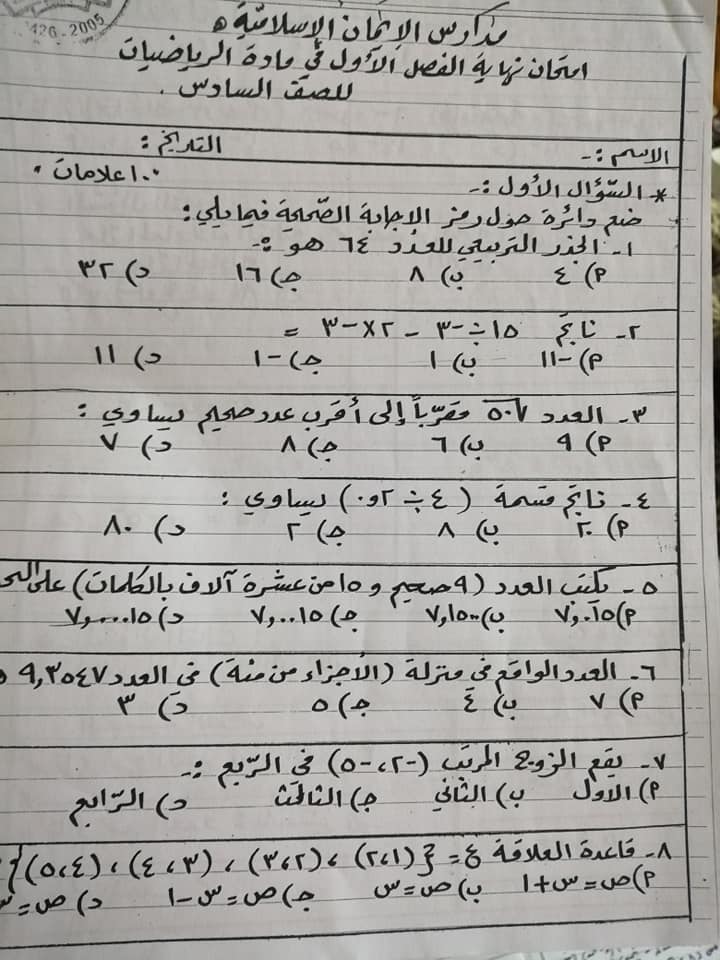 426.2005
مدارس الإيمان الإسلامية
امتحان نهاية الفصل الأول في مادة الرياضيات
للصف السادس .
الاسم :- التاريخ :
* السؤال الأول :- ١٠٠ علامات .
ضع دائرة حول رمز الإجابة الصحيحة فيما يلي :
١- الجذر التربيعي للعدد ٦٤ هو :-
أ) ٤ ب) ٨ جـ) ١٦ د) ٣٢
٢- ناتج ١٥ ÷ -٣ - ٢ × -٣ =
أ) -١١ ب) ١ جـ) -١ د) ١١
٣- العدد مقرباً إلى أقرب عدد صحيح يساوي :
أ) ٩ ب) ٦ جـ) ٨ د) ٧
٤- ناتج قسمة ( ٤ ÷ ٠,٢ ) يساوي :
أ) ٢٠ ب) ٨ جـ) ٢ د) ٨٠
٥- يكتب العدد (٩ صحيح و ١٥ من عشرة آلاف بالكلمات) على
أ) ٧,٠١٥ ب) ٧,١٥٠٠ جـ) ٧,٠٠١٥ د) ٧,٠٠٠٠١٥
٦- العدد الواقع في منزلة (الأجزاء من مئة) في العدد ٩,٣٥٤٧
أ) ٧ ب) ٤ جـ) ٥ د) ٣
٧- يقع الزوج المرتب (-٢، -٥) في الربع :-
أ) الأول ب) الثاني جـ) الثالث د) الرابع
٨- قاعدة العلاقة ع = { (١،٢) ، (٢،٣) ، (٣،٤) ، (٤،٥) }
أ) ص = س + ١ ب) ص = س جـ) ص = س - ١ د) ص =